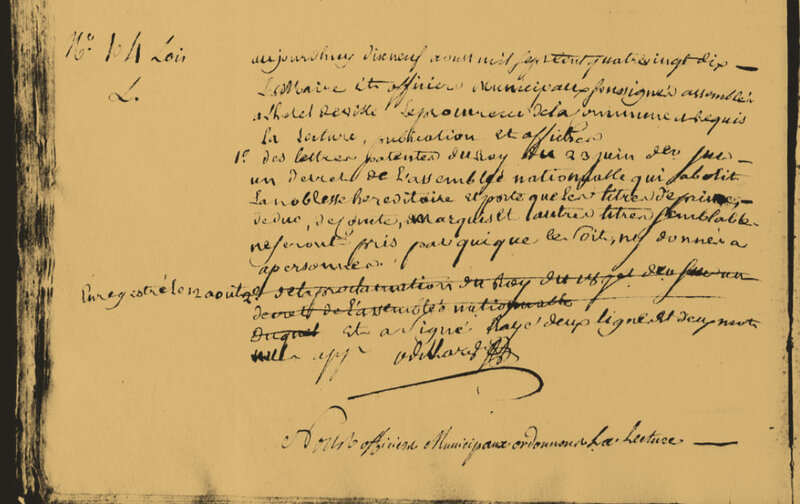 N.º 104 Lois
L.
aujourdhuy dix neuf aoust mil sept cent quatre vingt dix —
Les Maire Et officiers Municipaux soussignés assemblés
a L'hotel de ville Le procureur de la commune a Requis
La Lecture, publication et affiches
1.º des lettres patentes du Roy du 23 juin der sur —
un decret de L'assemblée nationnalle qui abolit
La noblesse hereditoire et porte que Les titres de prince,
de duc, de comte, marquis Et autres titres semblables
ne seront pris par qui que ce soit, ny donnés a
a personnes.
Enregistré Le 12 aout 2.º de la proclamation du Roy du der sur un
decret de L'assemblée nationnalle
Duquel Et a signé Rayé deux lignes et deux mots
nulle app
Nous officiers Municipaux ordonnons La Lecture —